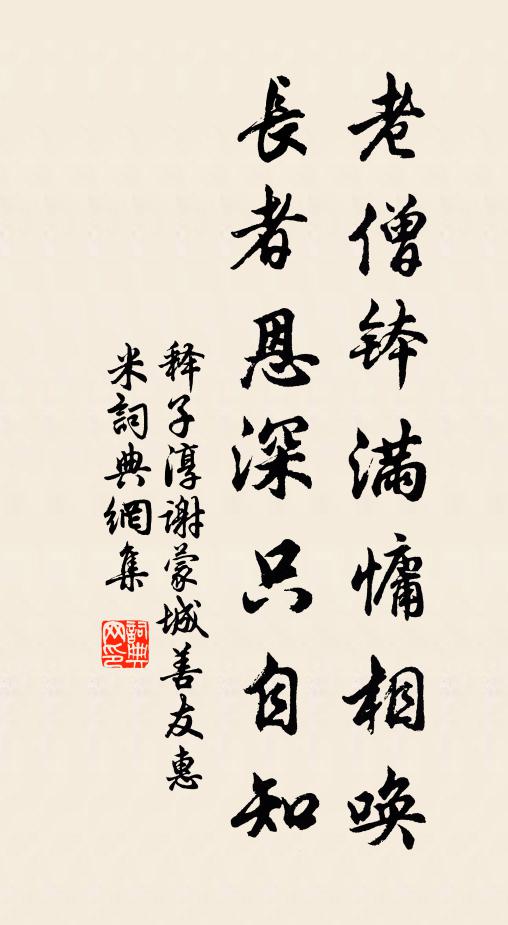 老僧鉢滿慵相喚
長者恩深只自知
释子淳谢蒙城善友惠
米詞典網集
詞典
网印